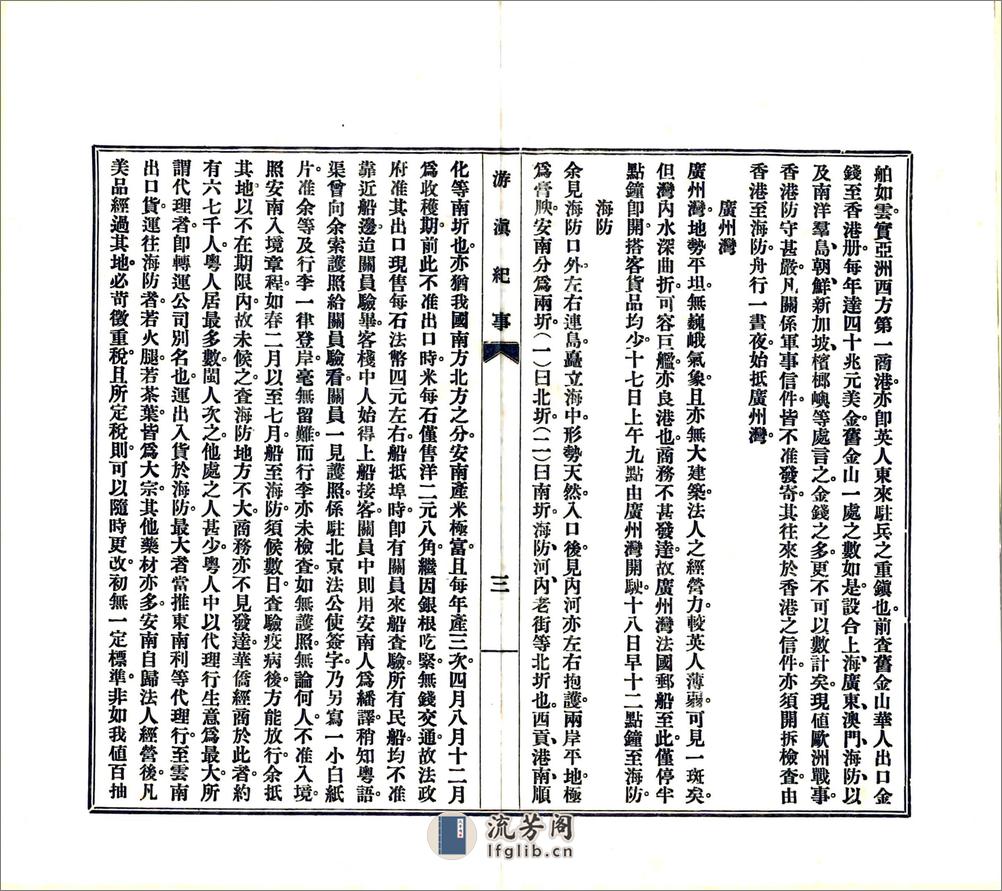 舶如雲實亞洲西方第一商港。亦卽英人東來駐兵之重鎭也。前查舊金山華人出口金
錢至香港册每年達四十兆元美金舊金山一處之數如是設合上海、廣東、澳門、海防、以
及南洋羣島、朝鮮、新加坡、檳榔嶼等處言之。金錢之多更不可以數計矣。現値歐洲戰事。
香港防守甚嚴。凡關係軍事信件皆不准發寄。其往來於香港之信件亦須開拆檢查。由
香港至海防舟行一晝夜始抵廣州灣。
廣州灣
廣州灣地勢平坦。無巍峨氣象。且亦無大建築。法人之經營力較英人薄弱。可見一斑矣。
但灣內水深曲折。可容巨艦。亦良港也。商務不甚發達。故廣州灣法國郵船至此僅停半
點鐘卽開。搭客貨品均少。十七日上午九點由廣州灣開駛。十八日早十二點鐘至海防。
海防
余見海防口外左右連島矗立海中。形勢天然。入口後見內河亦左右抱護。兩岸平地極
爲膏腴。安南分爲兩圻。(一)曰北圻(二)曰南圻。海防、河內、老街等北圻也。西貢、港南、順
游滇紀事
三
化等南圻也。亦猶我國南方北方之分。安南產米極富。且每年產三次。四月八月十二月
爲收穫期。前此不准出口。時米每石僅售洋二元八角。繼因銀根吃緊無錢交通。故法政
府准其出口。現售每石法幣四元左右。船抵埠時卽有關員來船查驗。所有民船均不准
靠近船邊。迨關員驗畢。客棧中人始得上船接客。關員中則用安南人爲繙譯。稍知粵語。
渠曾向余索護照給關員驗看。關員一見護照係駐北京法公使簽字。乃另寫一小白紙
片。准余等及行李一律登岸。毫無留難。而行李亦未檢查。如無護照。無論何人。不准入境。
照安南入境章程如春二月以至七月船至海防。須候數日。查驗疫病後。方能放行。余抵
其地以不在期限內。故未候之。查海防地方不大。商務亦不見發達。華僑經商於此者約
有六七千人。粵人居最多數。閩人次之。他處之人甚少。粵人中以代理行生意爲最大。所
謂代理者。卽轉運公司別名也。運出入貨於海防最大者當推東南利等代理行。至雲南
出口貨。運往海防者若火腿、若茶葉皆爲大宗。其他藥材亦多。安南自歸法人經營後。凡
美品經過其地。必苛徵重稅。且所定稅則可以隨時更改。初無一定標準。非如我値百抽
流芳阁
lfglib.cn